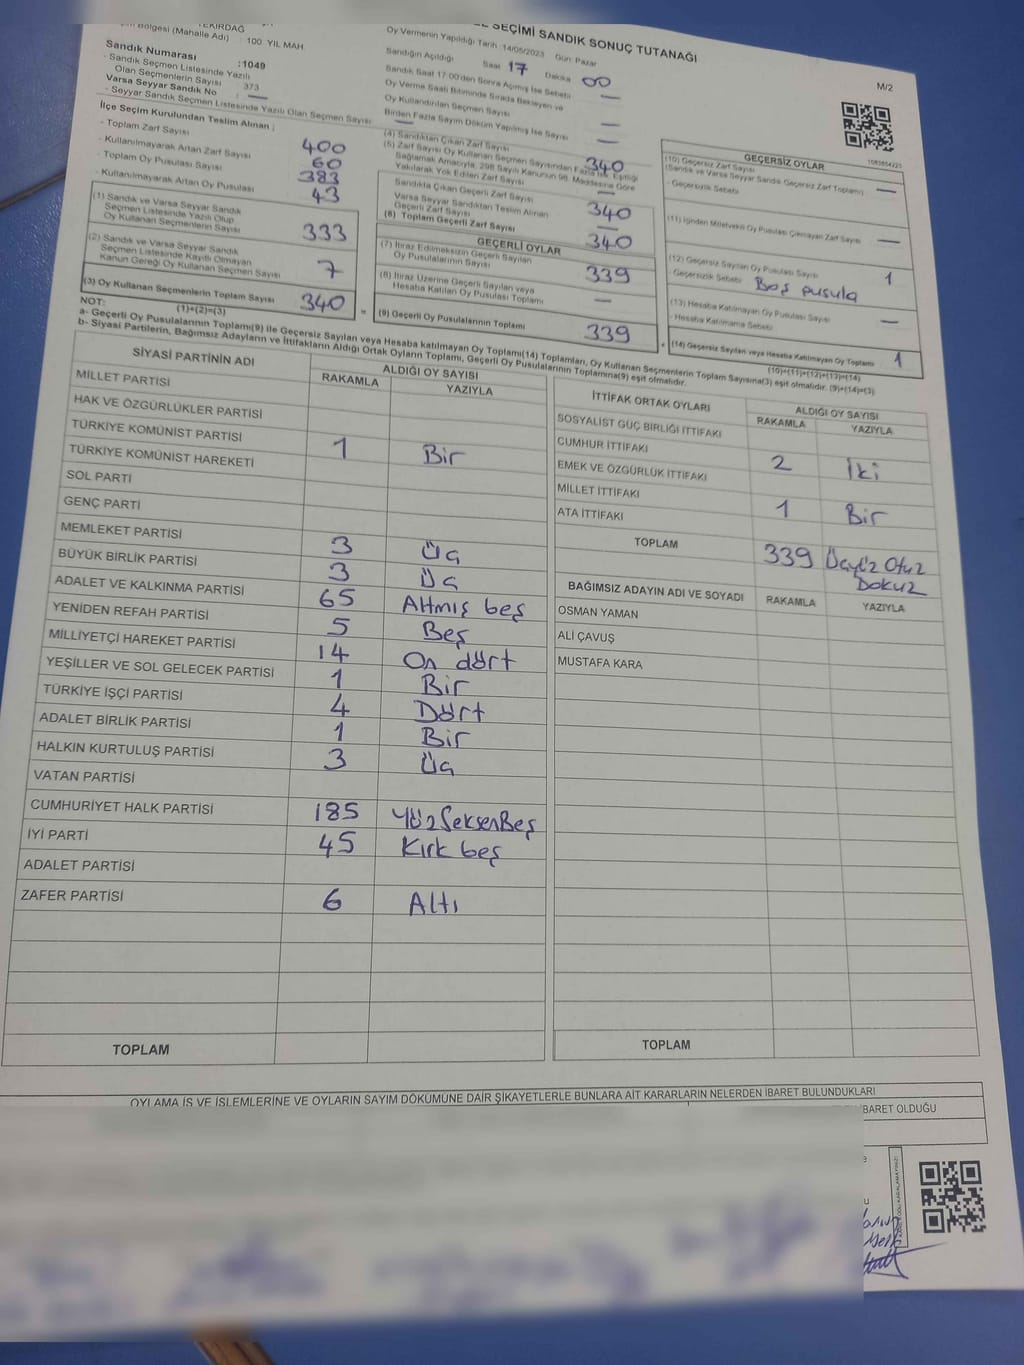 TEKİRDAĞ
Bölgesi (Mahalle Adı) : 100 YIL MAH.
Sandık Numarası :1049
- Sandık Seçmen Listesinde Yazılı
Olan Seçmenlerin Sayısı 373
Varsa Seyyar Sandık No : —
- Seyyar Sandık Seçmen Listesinde Yazılı Olan Seçmen Sayısı —
İlçe Seçim Kurulundan Teslim Alınan ;
- Toplam Zarf Sayısı 400
- Kullanılmayarak Artan Zarf Sayısı 60
- Toplam Oy Pusulası Sayısı 383
- Kullanılmayarak Artan Oy Pusulası 43
(1) Sandık ve Varsa Seyyar Sandık
Seçmen Listesinde Yazılı Olup
Oy Kullanan Seçmenlerin Sayısı 333
(2) Sandık ve Varsa Seyyar Sandık
Seçmen Listesinde Kayıtlı Olmayan
Kanun Gereği Oy Kullanan Seçmen Sayısı 7
(3) Oy Kullanan Seçmenlerin Toplam Sayısı 340
(1)+(2)=(3)
SEÇİMİ SANDIK SONUÇ TUTANAĞI
M/2
Oy Vermenin Yapıldığı Tarih :14/05/2023 Gün: Pazar
Sandığın Açıldığı Saat 17 Dakika 00
Sandık Saat 17:00'den Sonra Açılmış İse Sebebi —
Oy Verme Saati Bitiminde Sırada Bekleyen ve
Oy Kullandırılan Seçmen Sayısı —
Birden Fazla Sayım Döküm Yapılmış İse Sayısı —
(4) Sandıktan Çıkan Zarf Sayısı 340
(5) Zarf Sayısı Oy Kullanan Seçmen Sayısından Fazla İse, Eşitliği
Sağlamak Amacıyla, 298 Sayılı Kanunun 98. Maddesine Göre
Yakılarak Yok Edilen Zarf Sayısı —
Sandıkta Çıkan Geçerli Zarf Sayısı 340
Varsa Seyyar Sandıktan Teslim Alınan
Geçerli Zarf Sayısı —
(6) Toplam Geçerli Zarf Sayısı 340
GEÇERLİ OYLAR
(7) İtiraz Edilmeksizin Geçerli Sayılan
Oy Pusulalarının Sayısı 339
(8) İtiraz Üzerine Geçerli Sayılan veya
Hesaba Katılan Oy Pusulası Toplamı —
(9) Geçerli Oy Pusulalarının Toplamı 339
1083854223
GEÇERSİZ OYLAR
(10) Geçersiz Zarf Sayısı
(Sandık ve Varsa Seyyar Sandık Geçersiz Zarf Toplamı) —
- Geçersizlik Sebebi
(11) İçinden Milletvekili Oy Pusulası Çıkmayan Zarf Sayısı —
(12) Geçersiz Sayılan Oy Pusulası Sayısı 1
- Geçersizlik Sebebi : Boş pusula
(13) Hesaba Katılmayan Oy Pusulası Sayısı —
- Hesaba Katılmama Sebebi
(14) Geçersiz Sayılan veya Hesaba Katılmayan Oy Toplamı 1
(10)+(11)+(12)+(13)=(14)
NOT:
a- Geçerli Oy Pusulalarının Toplamı(9) ile Geçersiz Sayılan veya Hesaba katılmayan Oy Toplamı(14) Toplamları, Oy Kullanan Seçmenlerin Toplam Sayısına(3) eşit olmalıdır. (9)+(14)=(3)
b- Siyasi Partilerin, Bağımsız Adayların ve İttifakların Aldığı Ortak Oyların Toplamı, Geçerli Oy Pusulalarının Toplamına(9) eşit olmalıdır.
SİYASİ PARTİNİN ADI ALDIĞI OY SAYISI
RAKAMLA YAZIYLA
MİLLET PARTİSİ
HAK VE ÖZGÜRLÜKLER PARTİSİ
TÜRKİYE KOMÜNİST PARTİSİ
TÜRKİYE KOMÜNİST HAREKETİ 1 Bir
SOL PARTİ
GENÇ PARTİ
MEMLEKET PARTİSİ 3 Üç
BÜYÜK BİRLİK PARTİSİ 3 Üç
ADALET VE KALKINMA PARTİSİ 65 Altmış beş
YENİDEN REFAH PARTİSİ 5 Beş
MİLLİYETÇİ HAREKET PARTİSİ 14 On dört
YEŞİLLER VE SOL GELECEK PARTİSİ 1 Bir
TÜRKİYE İŞÇİ PARTİSİ 4 Dört
ADALET BİRLİK PARTİSİ 1 Bir
HALKIN KURTULUŞ PARTİSİ 3 Üç
VATAN PARTİSİ
CUMHURİYET HALK PARTİSİ 185 YüzSeksenBeş
İYİ PARTİ 45 Kırk beş
ADALET PARTİSİ
ZAFER PARTİSİ 6 Altı
TOPLAM
İTTİFAK ORTAK OYLARI ALDIĞI OY SAYISI
RAKAMLA YAZIYLA
SOSYALİST GÜÇ BİRLİĞİ İTTİFAKI
CUMHUR İTTİFAKI 2 İki
EMEK VE ÖZGÜRLÜK İTTİFAKI
MİLLET İTTİFAKI 1 Bir
ATA İTTİFAKI
TOPLAM 339 Üçyüz Otuz
Dokuz
BAĞIMSIZ ADAYIN ADI VE SOYADI RAKAMLA YAZIYLA
OSMAN YAMAN
ALİ ÇAVUŞ
MUSTAFA KARA
TOPLAM
OYLAMA İŞ VE İŞLEMLERİNE VE OYLARIN SAYIM DÖKÜMÜNE DAİR ŞİKAYETLERLE BUNLARA AİT KARARLARIN NELERDEN İBARET BULUNDUKLARI
İBARET OLDUĞU